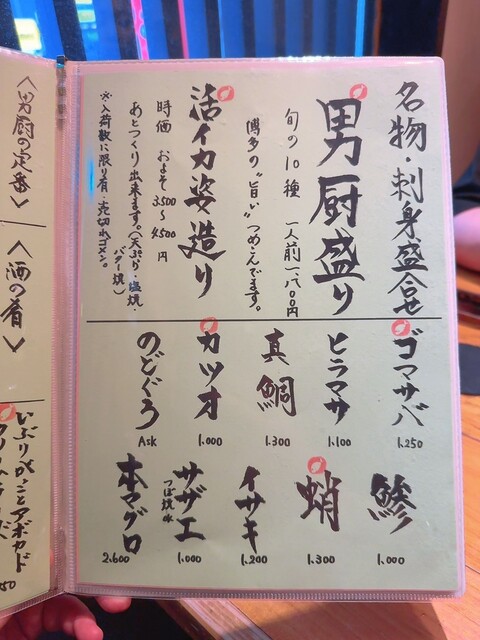 名物・刺身盛合せ
男厨盛り
旬の10種 一人前一、八〇〇円
博多の"旨い"つめこんでます。
活イカ姿造り
時価 およそ3500〜4500円
あとつくり出来ます。(天ぷら・塩焼・バター焼)
※入荷数に限り有・売切れゴメン。
ゴマサバ
1.250
ヒラマサ
1.100
真鯛
1.300
カツオ
1.000
のどぐろ
Ask
鯵
1.000
蛸
1.300
イサキ
1.200
サザエ
つぼ焼OK
1.000
本マグロ
2.600
〈男厨の定番〉
〈酒の肴〉
いぶりがっことアボカド